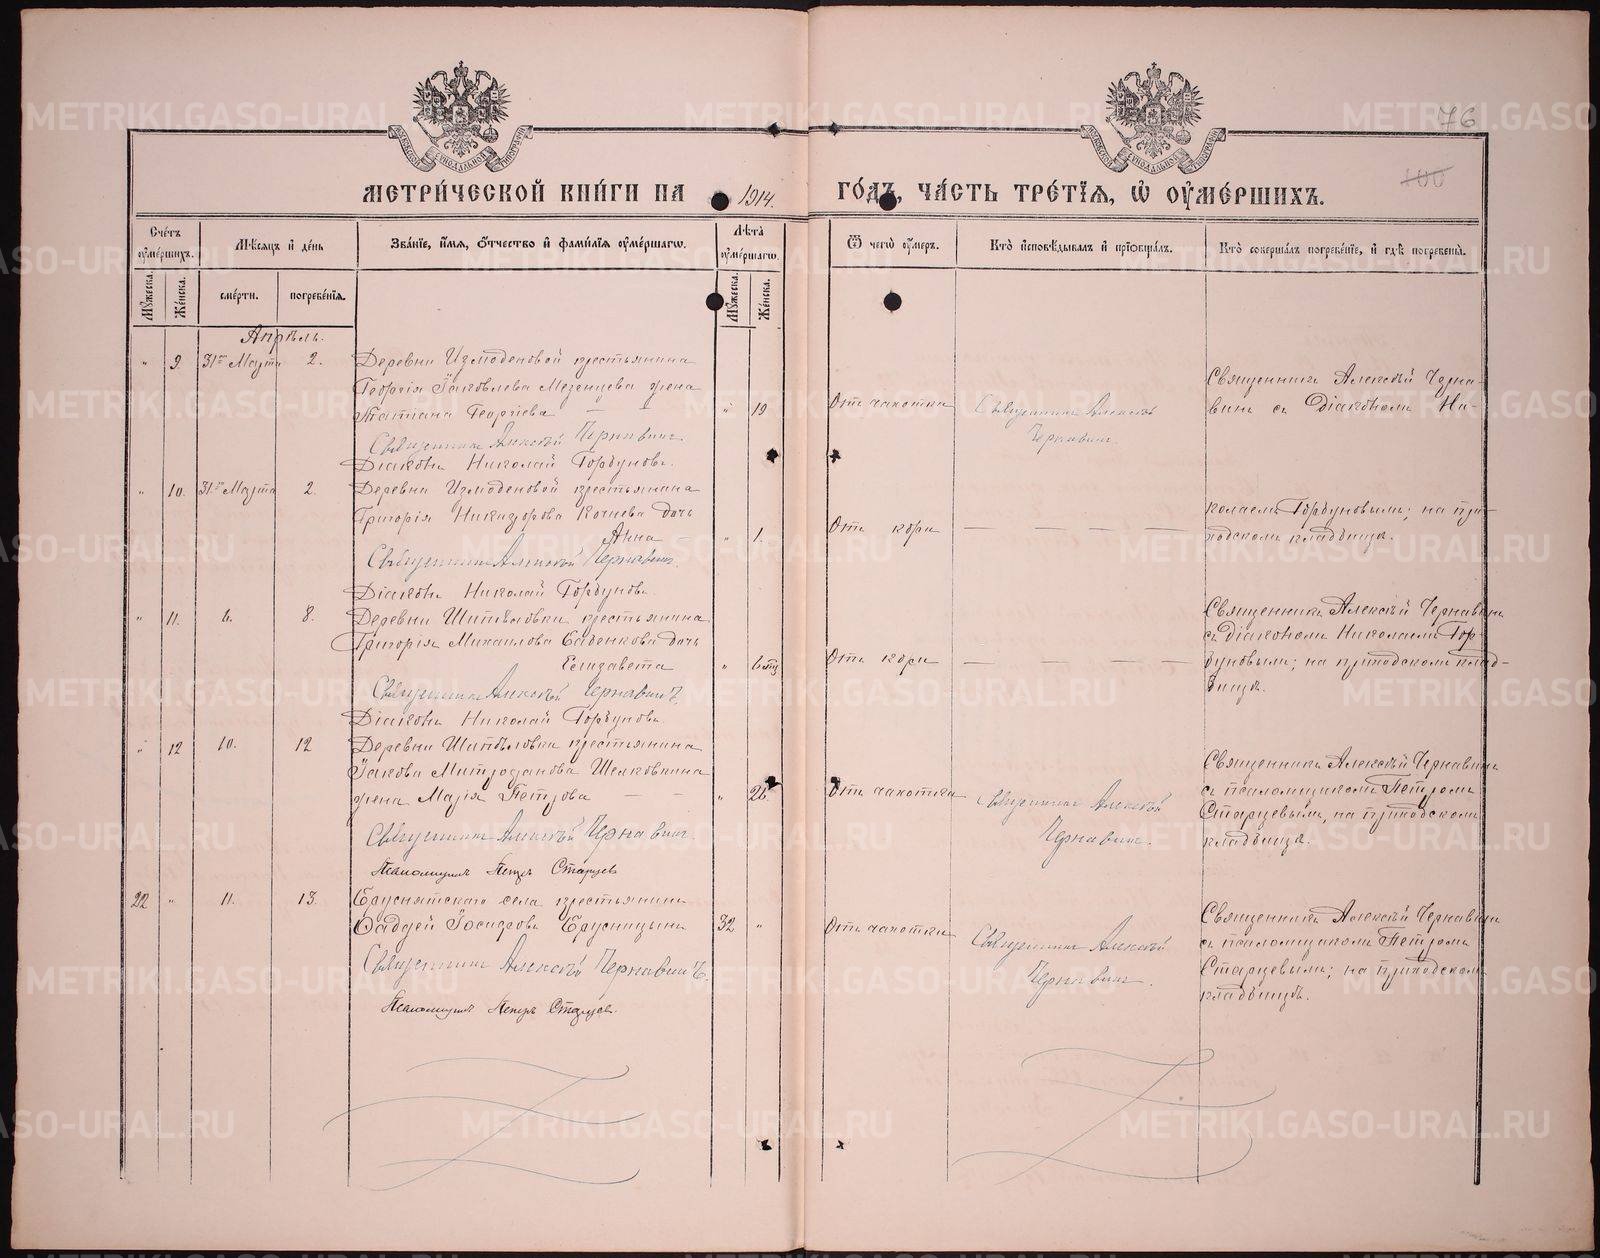 76
100
МЕТРИ́ЧЕСКОЙ КНИ́ГИ НА 1914. ГО́ДЪ, ЧА́СТЬ ТРЕ́ТІЯ, Ѡ ОУ҆МЕ́РШИХЪ.
Сче́тъ оу҆ме́ршихъ.
Мѣ́сяцъ и҆ де́нь
Зва́ніе, и҆́мя, ѻ҆́тчество и҆ фами́лія оу҆ме́ршагѡ.
Лѣ́та оу҆ме́ршагѡ.
Ѿ чегѡ̀ оу҆́меръ.
Кто̀ и҆сповѣ́дывалъ и҆ прїѡбща́лъ.
Кто̀ соверша́лъ погребе́ніе, и҆ гдѣ̀ погребены̀.
Мꙋ́жеска.
Же́нска.
сме́рти.
погребе́нїя.
Мꙋ́жеска.
Же́нска.
Апрѣль.
" 9 31го Марта 2.
Деревни Измоденовой крестьянина
Георгія Іаковлева Мезенцева жена
Татіана Георгіева — — " 19
Священникъ Алексѣй Чернавинъ
Діаконъ Николай Горбуновъ.
Отъ чахотки
Священникъ Алексѣй
Чернавинъ.
Священникъ Алексѣй Черна-
винъ съ Діакономъ Ни-
" 10. 31го Марта 2.
Деревни Измоденовой крестьянина
Григорія Никифорова Кочнева дочь
Анна " 1.
Священникъ Алексѣй Чернавинъ.
Діаконъ Николай Горбуновъ.
Отъ кори — — — —
колаемъ Горбуновымъ; на при-
ходскомъ кладбищѣ.
" 11. 6. 8.
Деревни Шипѣловки крестьянина
Григорія Михаилова Бабенкова дочь
Елизавета " 6 мц
Священникъ Алексѣй Чернавинъ.
Діаконъ Николай Горбуновъ.
Отъ кори — — — —
Священникъ Алексѣй Чернавинъ
съ Діакономъ Николаемъ Гор-
буновымъ; на приходскомъ клад-
бищѣ.
" 12 10. 12
Деревни Шипѣловки крестьянина
Іакова Митрофанова Шелковкина
жена Марія Петрова — — " 26
Священникъ Алексѣй Чернавинъ.
Псаломщикъ Петръ Старцевъ
Отъ чахотки
Священникъ Алексѣй
Чернавинъ.
Священникъ Алексѣй Чернавинъ
съ псаломщикомъ Петромъ
Старцевымъ, на приходскомъ
кладбищѣ.
22 " 11. 13.
Бруснятскаго села крестьянинъ
Фаддей Іосифовъ Брусницынъ 32 "
Священникъ Алексѣй Чернавинъ.
Псаломщикъ Петръ Старцевъ.
Отъ чахотки
Священникъ Алексѣй
Чернавинъ.
Священникъ Алексѣй Чернавинъ
съ псаломщикомъ Петромъ
Старцевымъ; на приходскомъ
кладбищѣ.
METRIKI.GASO-URAL.RU